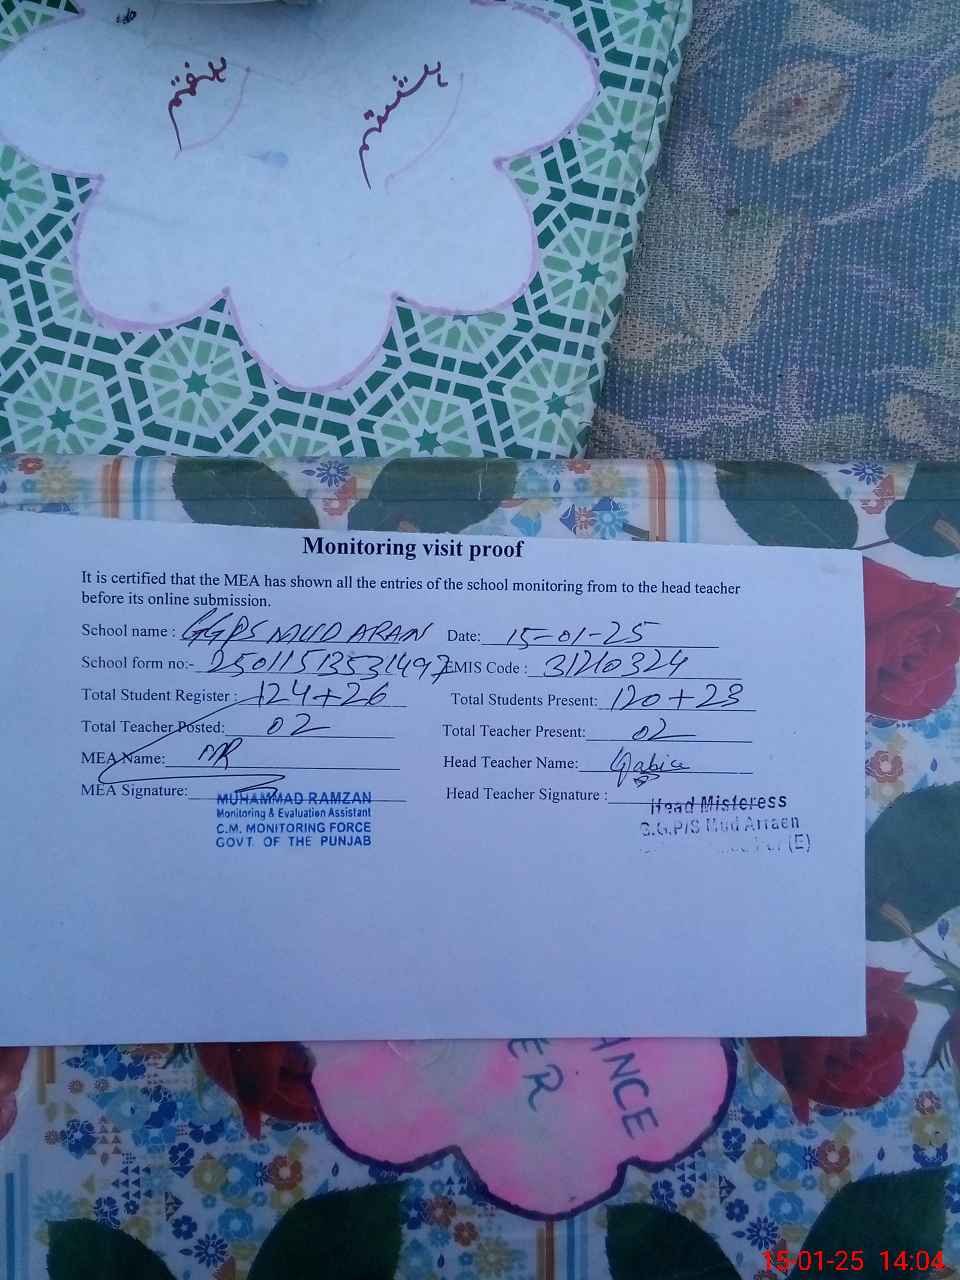 ہفتم
ہشتم
Monitoring visit proof
It is certified that the MEA has shown all the entries of the school monitoring from to the head teacher
before its online submission.
School name : GGPS MUD ARAN Date: 15-01-25
School form no:- 2501151353149 EMIS Code : 31210324
Total Student Register : 124+26 Total Students Present: 120+23
Total Teacher Posted: 02 Total Teacher Present: 02
MEA Name: MR Head Teacher Name:
MEA Signature: Head Teacher Signature :
MUHAMMAD RAMZAN
Monitoring & Evaluation Assistant
C.M. MONITORING FORCE
GOVT. OF THE PUNJAB
Head Misteress
G.G.P/S Mud Arraen
(E)
ANCE
ER
15-01-25 14:04